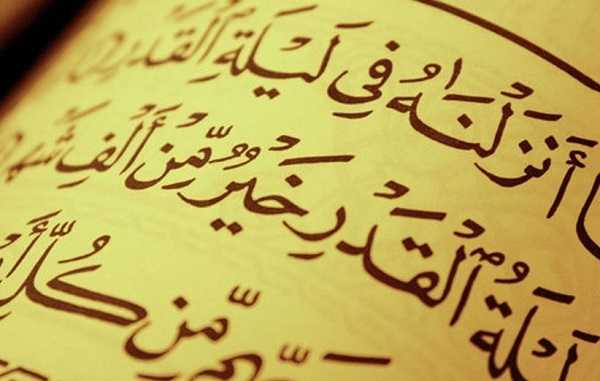 أَنزَلْنَٰهُ فِي لَيْلَةِ ٱلْقَدْرِ
لَيْلَةُ ٱلْقَدْرِ خَيْرٌ مِّنْ أَلْفِ شَهْرٍ
مِّن كُلِّ